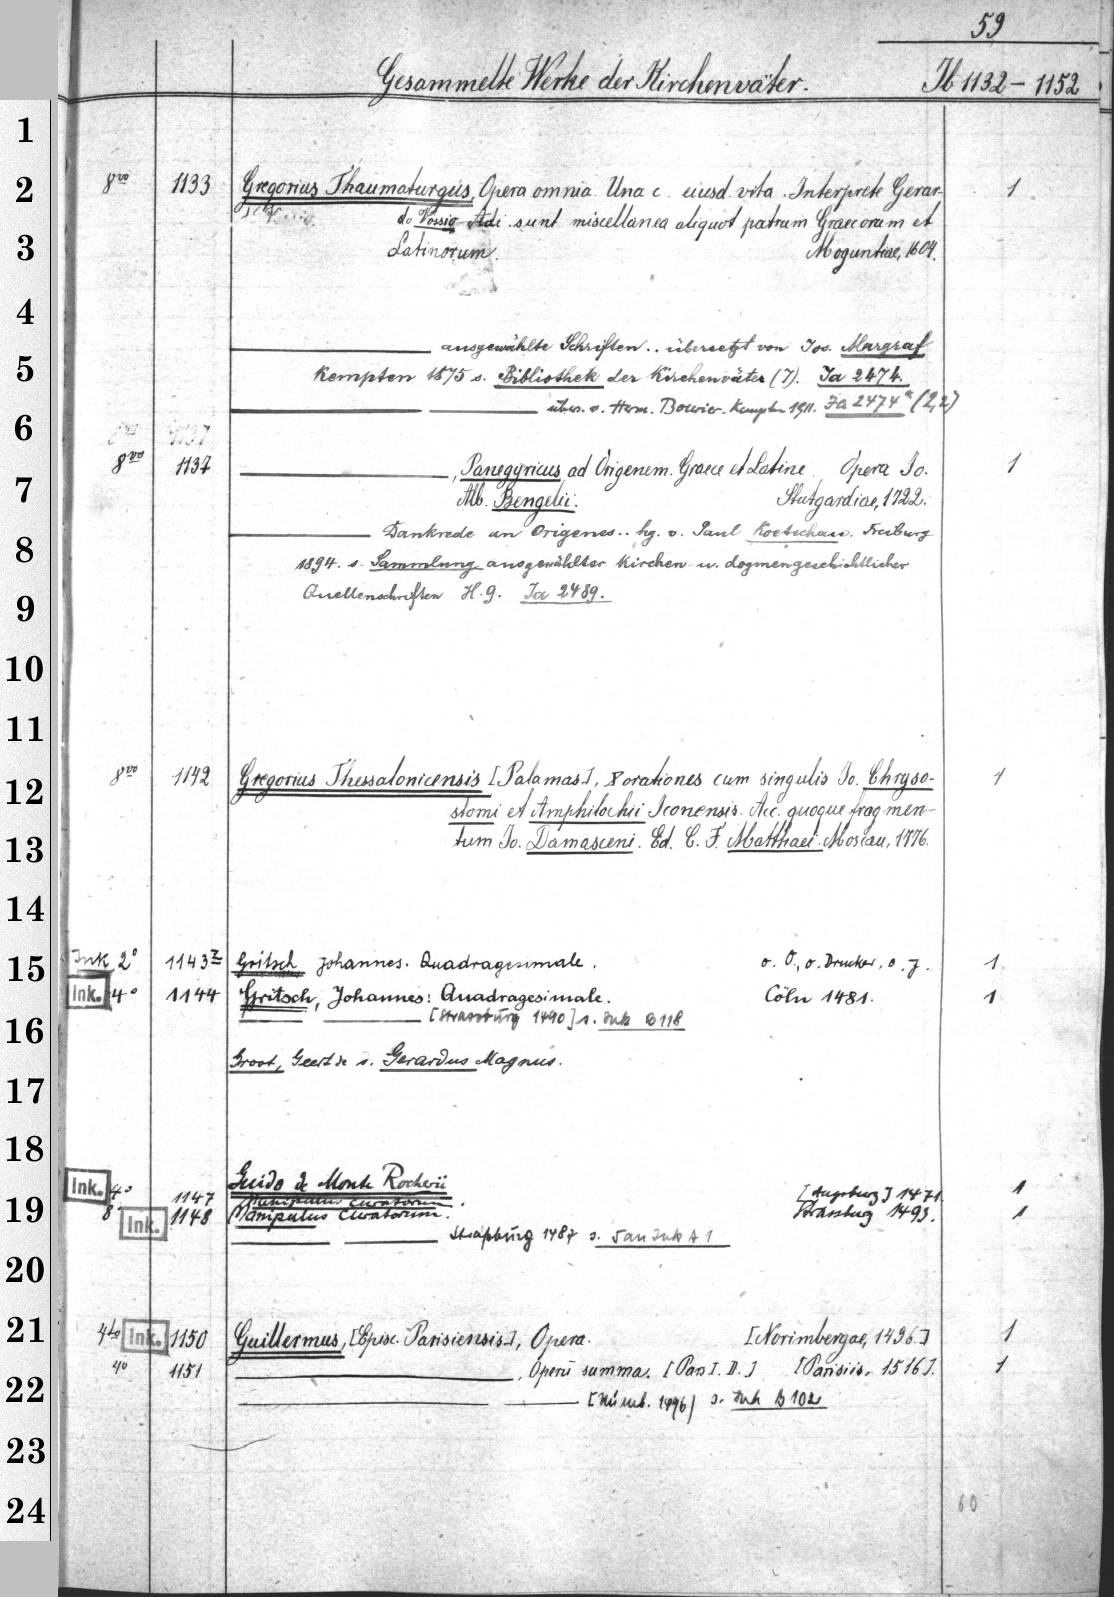 59
Gesammelte Werke der Kirchenväter. Ib 1132 – 1152
1
2 8vo 1133 Gregorius Thaumaturgus, Opera omnia. Una c. eiusd. vita. Interprete Gerar- 1
do Vossio. Adi. sunt miscellanea aliquot patrum Graecorum et
3 Latinorum. Moguntiae, 1604.
4
ausgewählte Schriften.. übersetzt von Jos. Margraf
5 Kempten 1875 s. Bibliothek der Kirchenväter (7). Ia 2474.
übers. v. Herm. Bourier. Kempten 1911. Ia 2474a (2,2)
6 1137
8vo 1137 , Panegyricus ad Origenem. Graece et Latine. Opera Jo. 1
7 Alb. Bengelii. Stutgardiae, 1722.
Dankrede an Origenes.. hg. v. Paul Koetschau. Freiburg
8 1894. s. Sammlung ausgewählter kirchen- u. dogmengeschichtlicher
9 Quellenschriften H. 9. Ia 2489.
10
11
12 8vo 1142 Gregorius Thessalonicensis [Palamas], X orationes cum singulis Jo. Chryso- 1
stomi et Amphilochii Iconensis. Acc. quoque fragmen-
13 tum Jo. Damasceni. Ed. C. F. Matthaei. Moscau, 1776.
14
15 Ink 2° 1143z Gritsch Johannes. Quadragesimale. o. O., o. Drucker, o. J. 1
Ink. 4° 1144 Gritsch, Johannes: Quadragesimale. Cöln 1481. 1
16 [Strassburg 1490] s. Ink B 118
Groot, Geert de s. Gerardus Magnus.
17
18
Guido de Monte Rocherii
Ink. 4° 1147 Manipulus curatorum. [Augsburg] 1471. 1
19 8° Ink. 1148 Manipulus curatorum. Strassburg 1493. 1
Straßburg 1487 s. San Ink A 1
20
21 4to Ink. 1150 Guillermus, [Episc. Parisiensis], Opera. [Norimbergae, 1496.] 1
4° 1151 , Operū summa. [Pars I. II.] [Parisiis, 1516]. 1
22 [Nürnb. 1496] s. Ink B 102
23
24 60